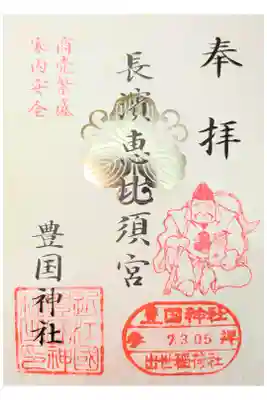 奉拝
長濱恵比須宮
商売繁盛
家内安全
豊国神社
豊国神社
参拝
7.3.05
出世稲荷社